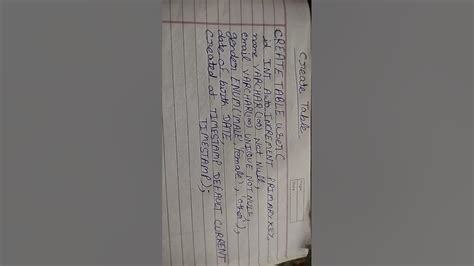 Create Table
CREATE TABLE user(
id INT Auto INCREMENT PRIMARY KEY,
name VARCHAR(100) Not Null,
email VARCHAR(100) UNIQUE NOT NULL,
gender ENUM('MALE', 'female', 'other'),
date of birth DATE,
Created at TIMESTAMP DEFAULT CURRENT
TIMESTAMP);